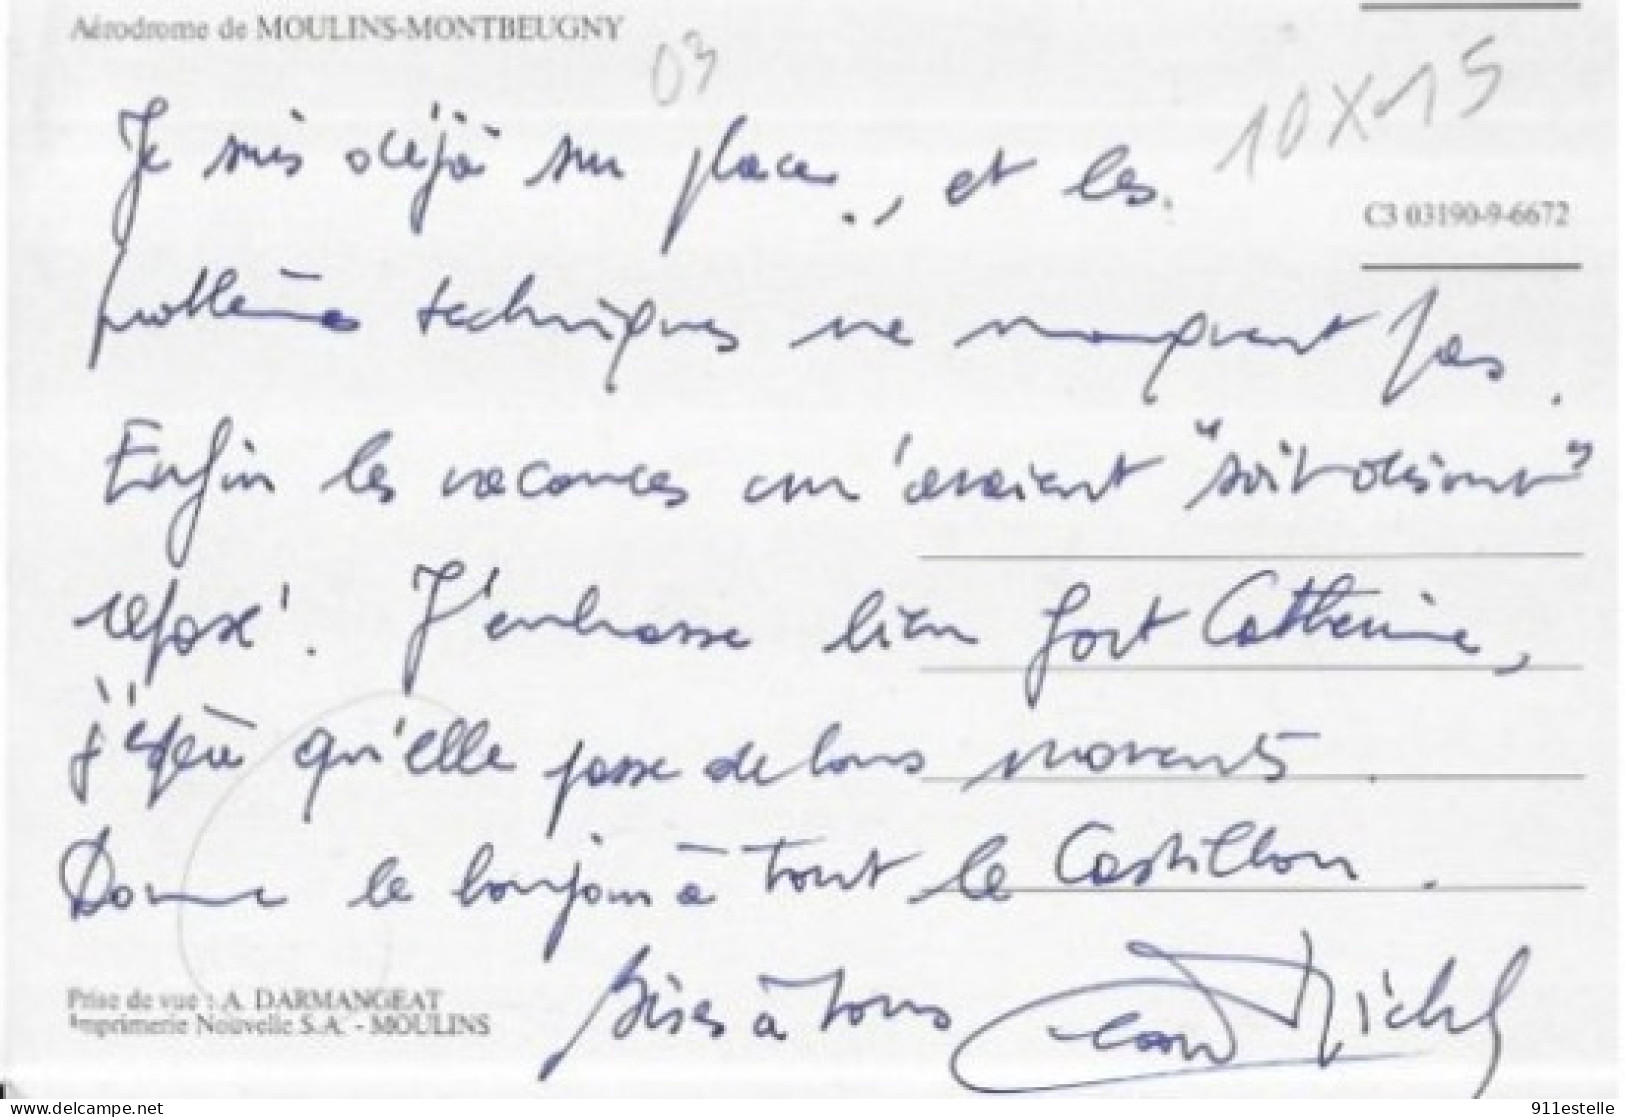 Aérodrome de MOULINS-MONTBEUGNY
03
10X15
C3 03190-9-6672
Je suis déjà sur place., et les
problèmes techniques ne manquent pas.
Enfin les vacances m'avaient "soit disant"
reposé. J'embrasse bien fort Catherine,
j'espère qu'elle passe de bons moments.
Donne le bonjour à tout le Castillon.
Bises à tous Jean Michel
Prise de vue : A. DARMANGEAT
Imprimerie Nouvelle S.A. - MOULINS
https://www.delcampe.net
911estelle